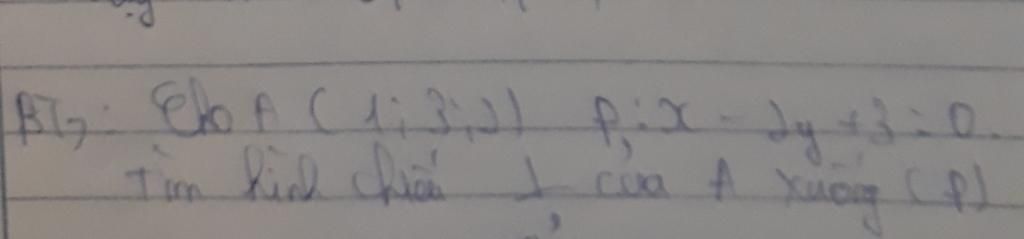 BT7: Cho A (1; 3; 2) P: x - 2y + 3 = 0.
Tìm hình chiếu ⊥ của A xuống (P)